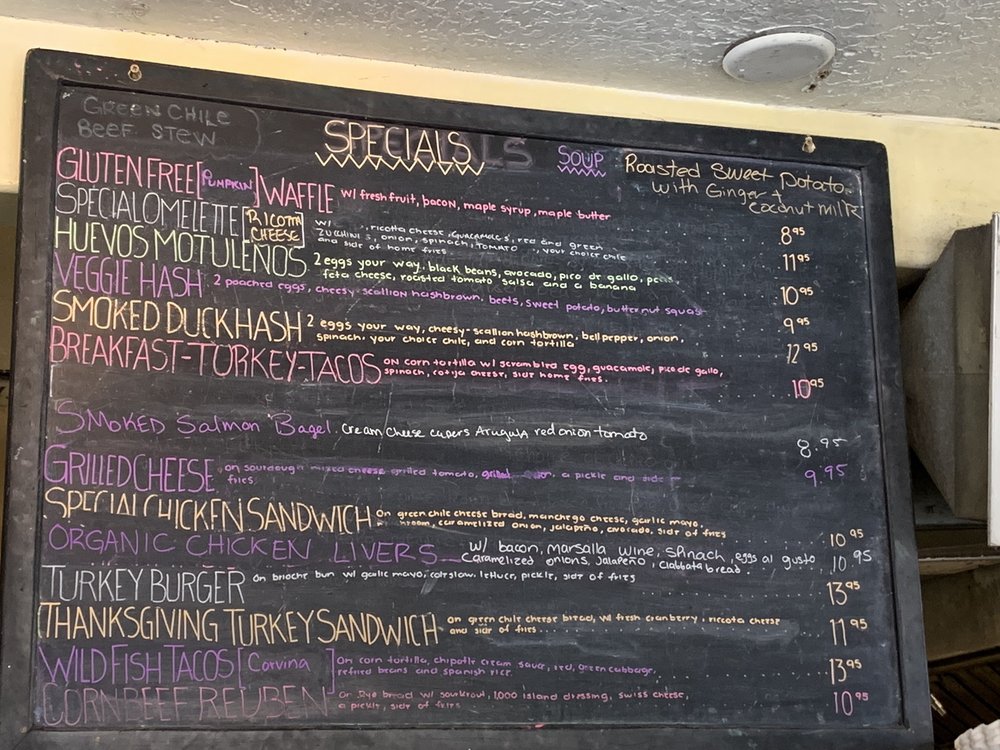 GREEN CHILE
BEEF STEW
SPECIALS
SOUP
Roasted Sweet Potato
with Ginger +
coconut milk
GLUTEN FREE [PUMPKIN] WAFFLE w/ fresh fruit, bacon, maple syrup, maple butter 8 95
SPECIAL OMELETTE RICOTTA CHEESE w/ ricotta cheese, GUACAMOLE, red and green
ZUCCHINI, onion, spinach, TOMATO, your choice chile
and side of home fries 11 95
HUEVOS MOTULEÑOS 2 eggs your way, black beans, avocado, pico de gallo, peas
feta cheese, roasted tomato salsa and a banana 10 95
VEGGIE HASH 2 poached eggs, cheesy-scallion hashbrown, beets, sweet potato, butternut squash 9 95
SMOKED DUCK HASH 2 eggs your way, cheesy-scallion hashbrown, bell pepper, onion,
spinach, your choice chile, and corn tortilla 12 95
BREAKFAST-TURKEY-TACOS on corn tortilla w/ scrambled egg, guacamole, pico de gallo,
spinach, cotija cheese, side home fries. 10 95
Smoked Salmon Bagel. Cream Cheese capers Arugula red onion tomato 8.95
GRILLED CHEESE on sourdough mixed cheese grilled tomato, grilled onion, a pickle and side
fries. 9.95
SPECIAL CHICKEN SANDWICH on green chile cheese bread, manchego cheese, garlic mayo,
caramelized onion, jalapeño, avocado, side of fries 10 95
ORGANIC CHICKEN LIVERS w/ bacon, Marsalla wine, spinach, eggs al gusto
Caramelized onions, jalapeño, ciabbata bread 10 95
TURKEY BURGER on brioche bun w/ garlic mayo, coleslaw, lettuce, pickle, side of fries 13 95
THANKSGIVING TURKEY SANDWICH on green chile cheese bread, w/ fresh cranberry, riccota cheese
and side of fries 11 95
WILD FISH TACOS [Corvina] on corn tortilla, chipotle cream sauce, red, green cabbage,
refried beans and spanish rice. 13 95
CORN BEEF REUBEN on Rye bread w/ sourkrout, 1,000 island dressing, swiss cheese,
a pickle, side of fries 10 95